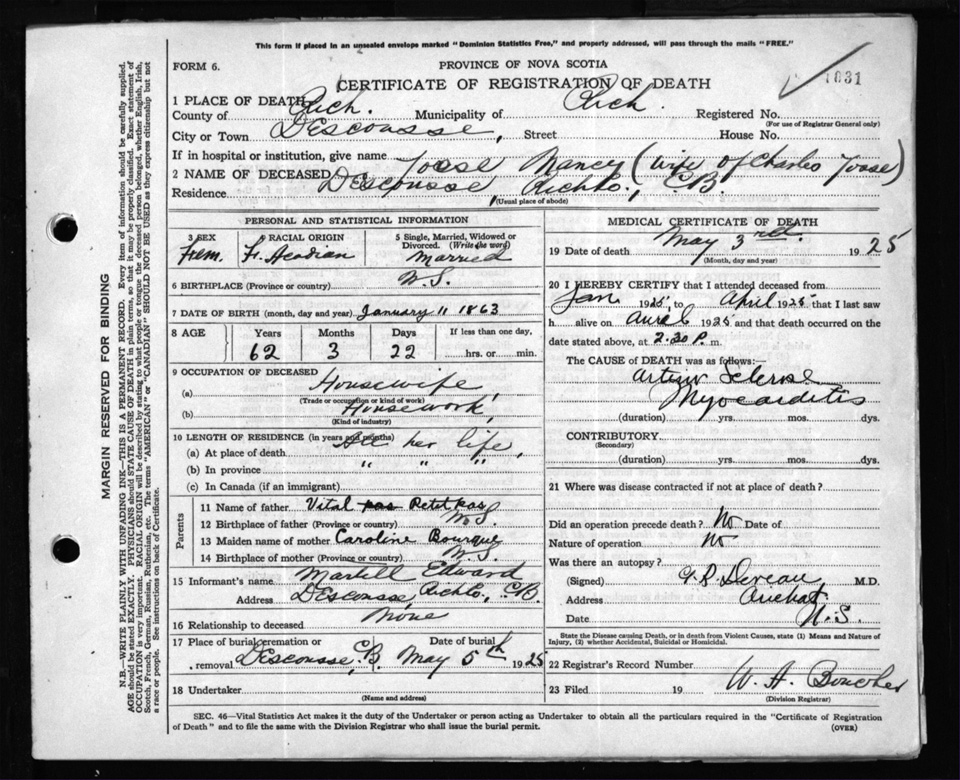 This form if placed in an unsealed envelope marked "Dominion Statistics Free," and properly addressed, will pass through the mails "FREE."
FORM 6.
PROVINCE OF NOVA SCOTIA
CERTIFICATE OF REGISTRATION OF DEATH
1031
1 PLACE OF DEATH
County of Rich. Municipality of Rich. Registered No.
(For use of Registrar General only)
City or Town Descousse, Street House No.
If in hospital or institution, give name
2 NAME OF DECEASED Joose Nancy (wife of Charles Joose)
Residence Descousse Rich Co., C.B.
(Usual place of abode)
PERSONAL AND STATISTICAL INFORMATION
3 SEX 4 RACIAL ORIGIN 5 Single, Married, Widowed or Divorced. (Write the word)
Fem. Fr. Acadian Married
6 BIRTHPLACE (Province or country) N.S.
7 DATE OF BIRTH (month, day and year) January 11 1863
8 AGE Years Months Days If less than one day,
62 3 22 hrs. or min.
9 OCCUPATION OF DECEASED
(a) Housewife,
(Trade or occupation or kind of work)
(b) Housework,
(Kind of industry)
10 LENGTH OF RESIDENCE (in years and months)
(a) At place of death All her life,
(b) In province " " "
(c) In Canada (if an immigrant)
Parents
11 Name of father Vital pas Petitpas
12 Birthplace of father (Province or country) N.S.
13 Maiden name of mother Caroline Bourque
14 Birthplace of mother (Province or country) N.S.
15 Informant's name Martell Edward
Address Descousse, Rich Co., C.B.
16 Relationship to deceased None
17 Place of burial, cremation or removal Descousse, C.B. Date of burial May 5th 1925
18 Undertaker
(Name and address)
MEDICAL CERTIFICATE OF DEATH
19 Date of death May 3rd. 1925
(Month, day and year)
20 I HEREBY CERTIFY that I attended deceased from
Jan 1925 to April 1925 that I last saw
h alive on 1925 and that death occurred on the
date stated above, at 2.30 P. m.
The CAUSE of DEATH was as follows:—
Sclerose
Myocarditis
(duration) yrs. mos. dys.
CONTRIBUTORY
(Secondary)
(duration) yrs. mos. dys.
21 Where was disease contracted if not at place of death?
Did an operation precede death? No Date of
Nature of operation No
Was there an autopsy?
(Signed) Deveau M.D.
Address Arichat
Date N.S.
State the Disease causing Death, or in death from Violent Causes, state (1) Means and Nature of Injury, (2) whether Accidental, Suicidal or Homicidal.
22 Registrar's Record Number
23 Filed 19 W. A. Boucher
(Division Registrar)
SEC. 46—Vital Statistics Act makes it the duty of the Undertaker or person acting as Undertaker to obtain all the particulars required in the "Certificate of Registration
of Death" and to file the same with the Division Registrar who shall issue the burial permit.
(OVER)
MARGIN RESERVED FOR BINDING
N.B.—WRITE PLAINLY WITH UNFADING INK—THIS IS A PERMANENT RECORD. Every item of information should be carefully supplied.
AGE should be stated EXACTLY. PHYSICIANS should STATE CAUSE OF DEATH in plain terms, so that it may be properly classified. Exact statement of
OCCUPATION is very important. RACIAL ORIGIN will be described by stating to what people or tongue the deceased person belonged, whether English, Irish,
Scotch, French, German, Russian, Ruthenian, etc. The terms "AMERICAN" or "CANADIAN" SHOULD NOT BE USED as they express citizenship but not
a race or people. See instructions on back of Certificate.